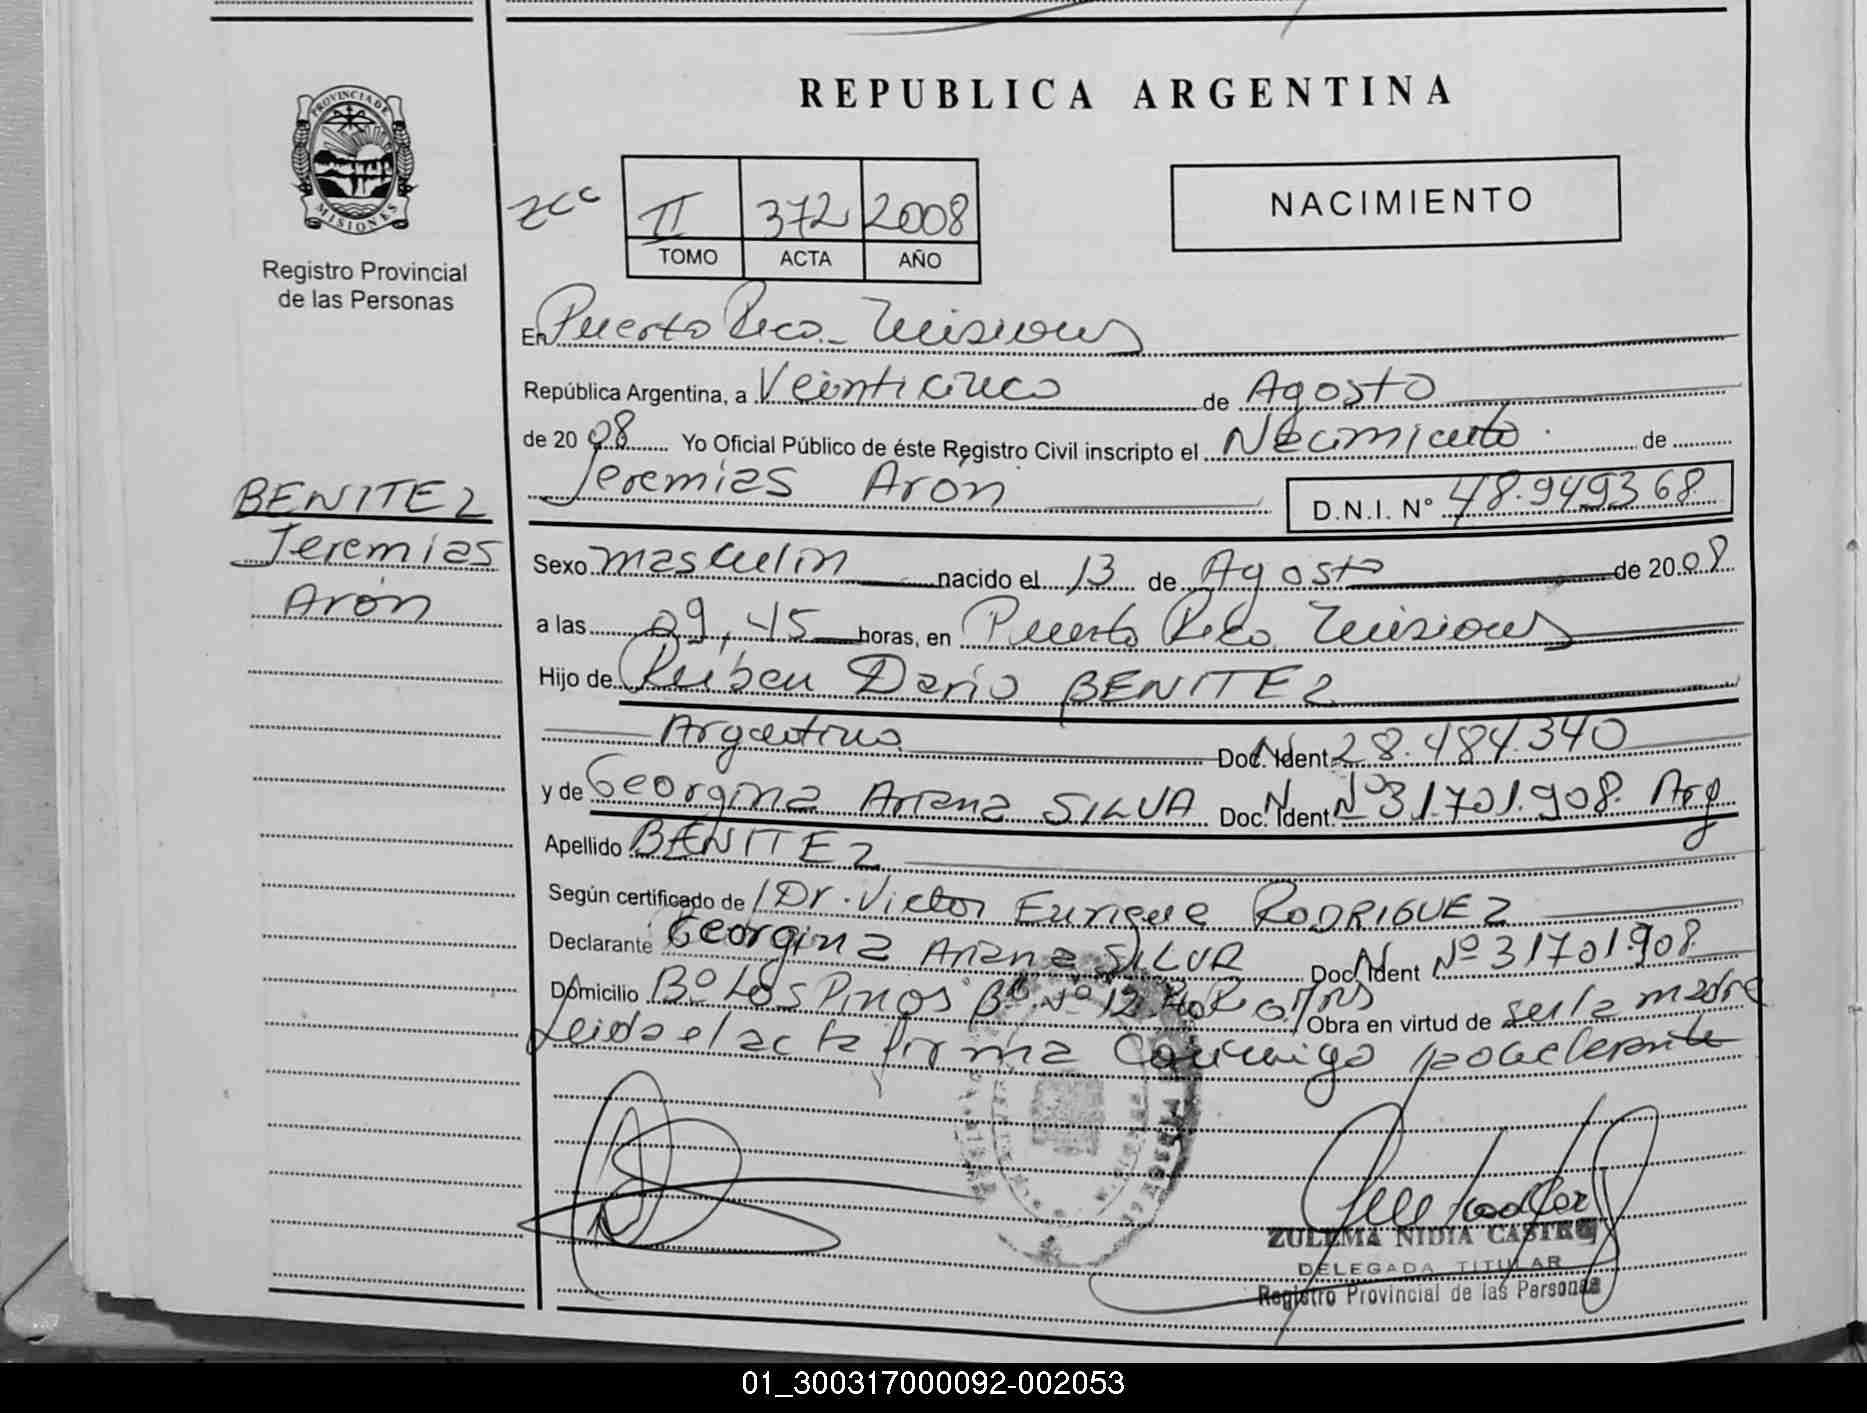 REPUBLICA ARGENTINA
PROVINCIA DE
MISIONES
Registro Provincial
de las Personas
NACIMIENTO
II 372 2008
TOMO ACTA AÑO
En Puerto Rico - Misiones
República Argentina, a Veinticinco de Agosto
de 20 08 Yo Oficial Público de éste Registro Civil inscripto el Nacimiento de
Jeremias Arón D.N.I. N° 48.949368
BENITEZ
Jeremias
Arón
Sexo masculin nacido el 13 de Agosto de 20 08
a las 09,45 horas, en Puerto Rico Misiones
Hijo de Ruben Dario BENITEZ
Argentino Doc. Ident. 28.484.340
y de Georgina Ariana SILVA Doc. Ident. Nº 31.701.908. Arg
Apellido BENITEZ
Según certificado de / Dr. Victor Enrique RODRIGUEZ
Declarante Georgina Ariana SILVA Doc. Ident Nº 31701.908
Domicilio Bº Los Pinos Nº 12 Obra en virtud de ser la madre
Leida el acta firma conmigo
ZULEMA NIDIA CASTRO
DELEGADA TITULAR
Registro Provincial de las Personas
01_300317000092-002053